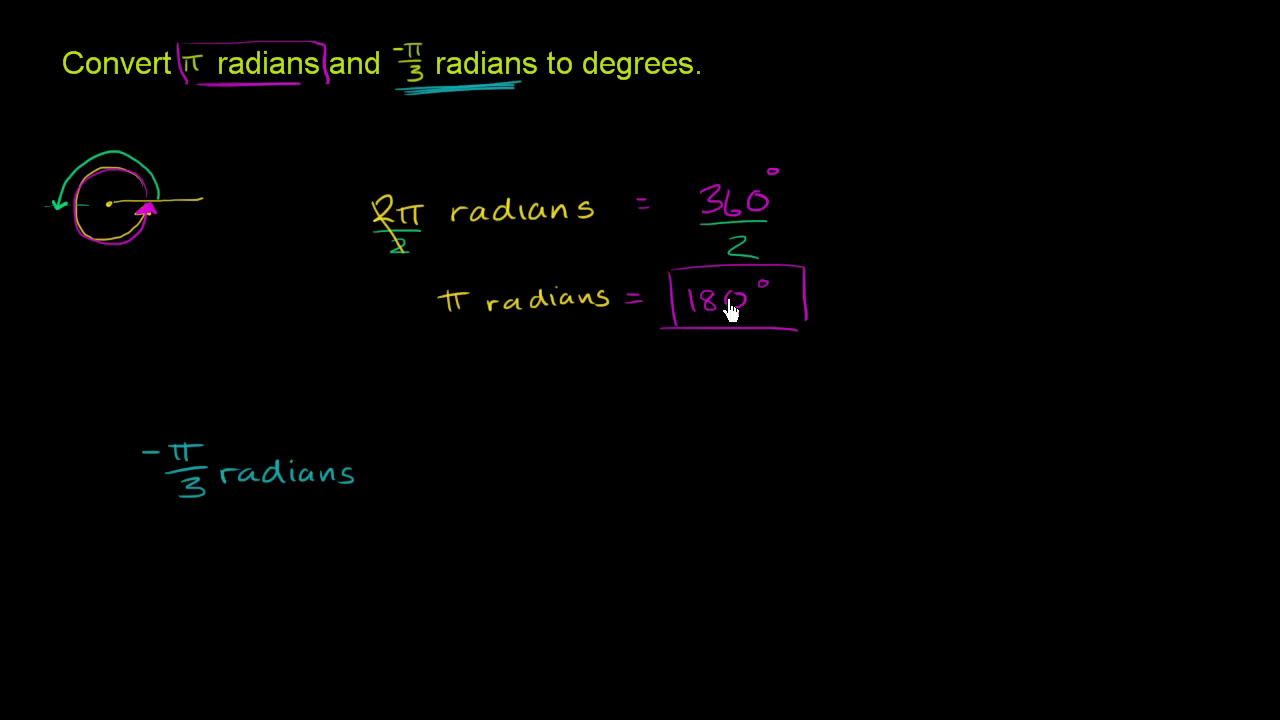 Convert π radians and -π/3 radians to degrees.
2π/2 radians = 360°/2
π radians = 180°
-π/3 radians